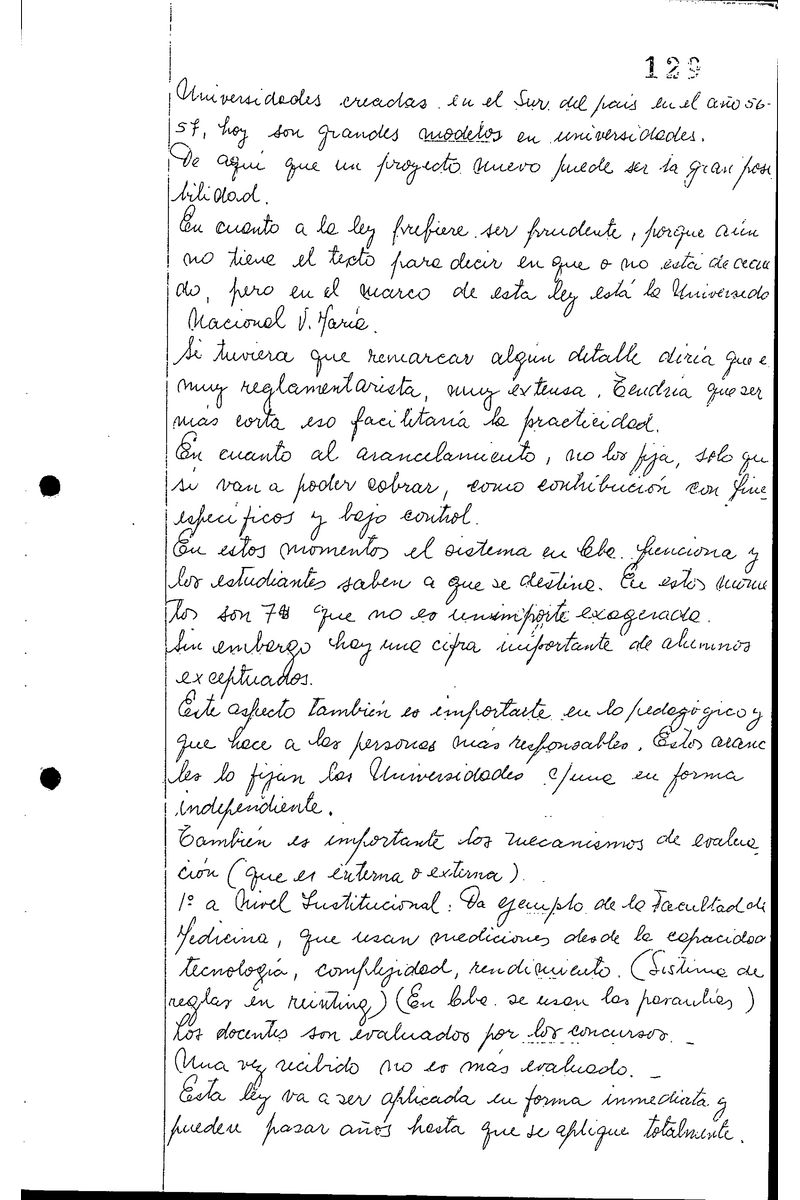 129
Universidades creadas en el Sur del país en el año 56-
57, hoy son grandes modelos en universidades.
De aquí que un proyecto nuevo puede ser la gran posi
bilidad.
En cuanto a la ley prefiere ser prudente, porque aún
no tiene el texto para decir en que o no está de acuer
do, pero en el marco de esta ley está la Universida
Nacional V. María.
Si tuviera que remarcar algún detalle diría que e
muy reglamentarista, muy extensa. Tendría que ser
más corta eso facilitaría la practicidad.
En cuanto al arancelamiento, no los fija, solo que
si van a poder cobrar, como contribución con fine
específicos y bajo control.
En estos momentos el sistema en Cba. funciona y
los estudiantes saben a que se destina. En estos mome
tos son 7$ que no es un importe exagerado.
Sin embargo hay una cifra importante de alumnos
exceptuados.
Este aspecto también es importante en lo pedagógico y
que hace a las personas más responsables. Estos aranc
les lo fijan las Universidades c/una en forma
independiente.
También es importante los mecanismos de evalua
ción (que es interna o externa).
1º a Nivel Institucional: Da ejemplo de la Facultad de
Medicina, que usan mediciones desde la capacidad
tecnología, complejidad, rendimiento. (Sistema de
reglas en) (En Cba. se usan las)
Los docentes son evaluados por los concursos. -
Una vez recibido no es más evaluado. -
Esta ley va a ser aplicada en forma inmediata y
pueden pasar años hasta que se aplique totalmente.